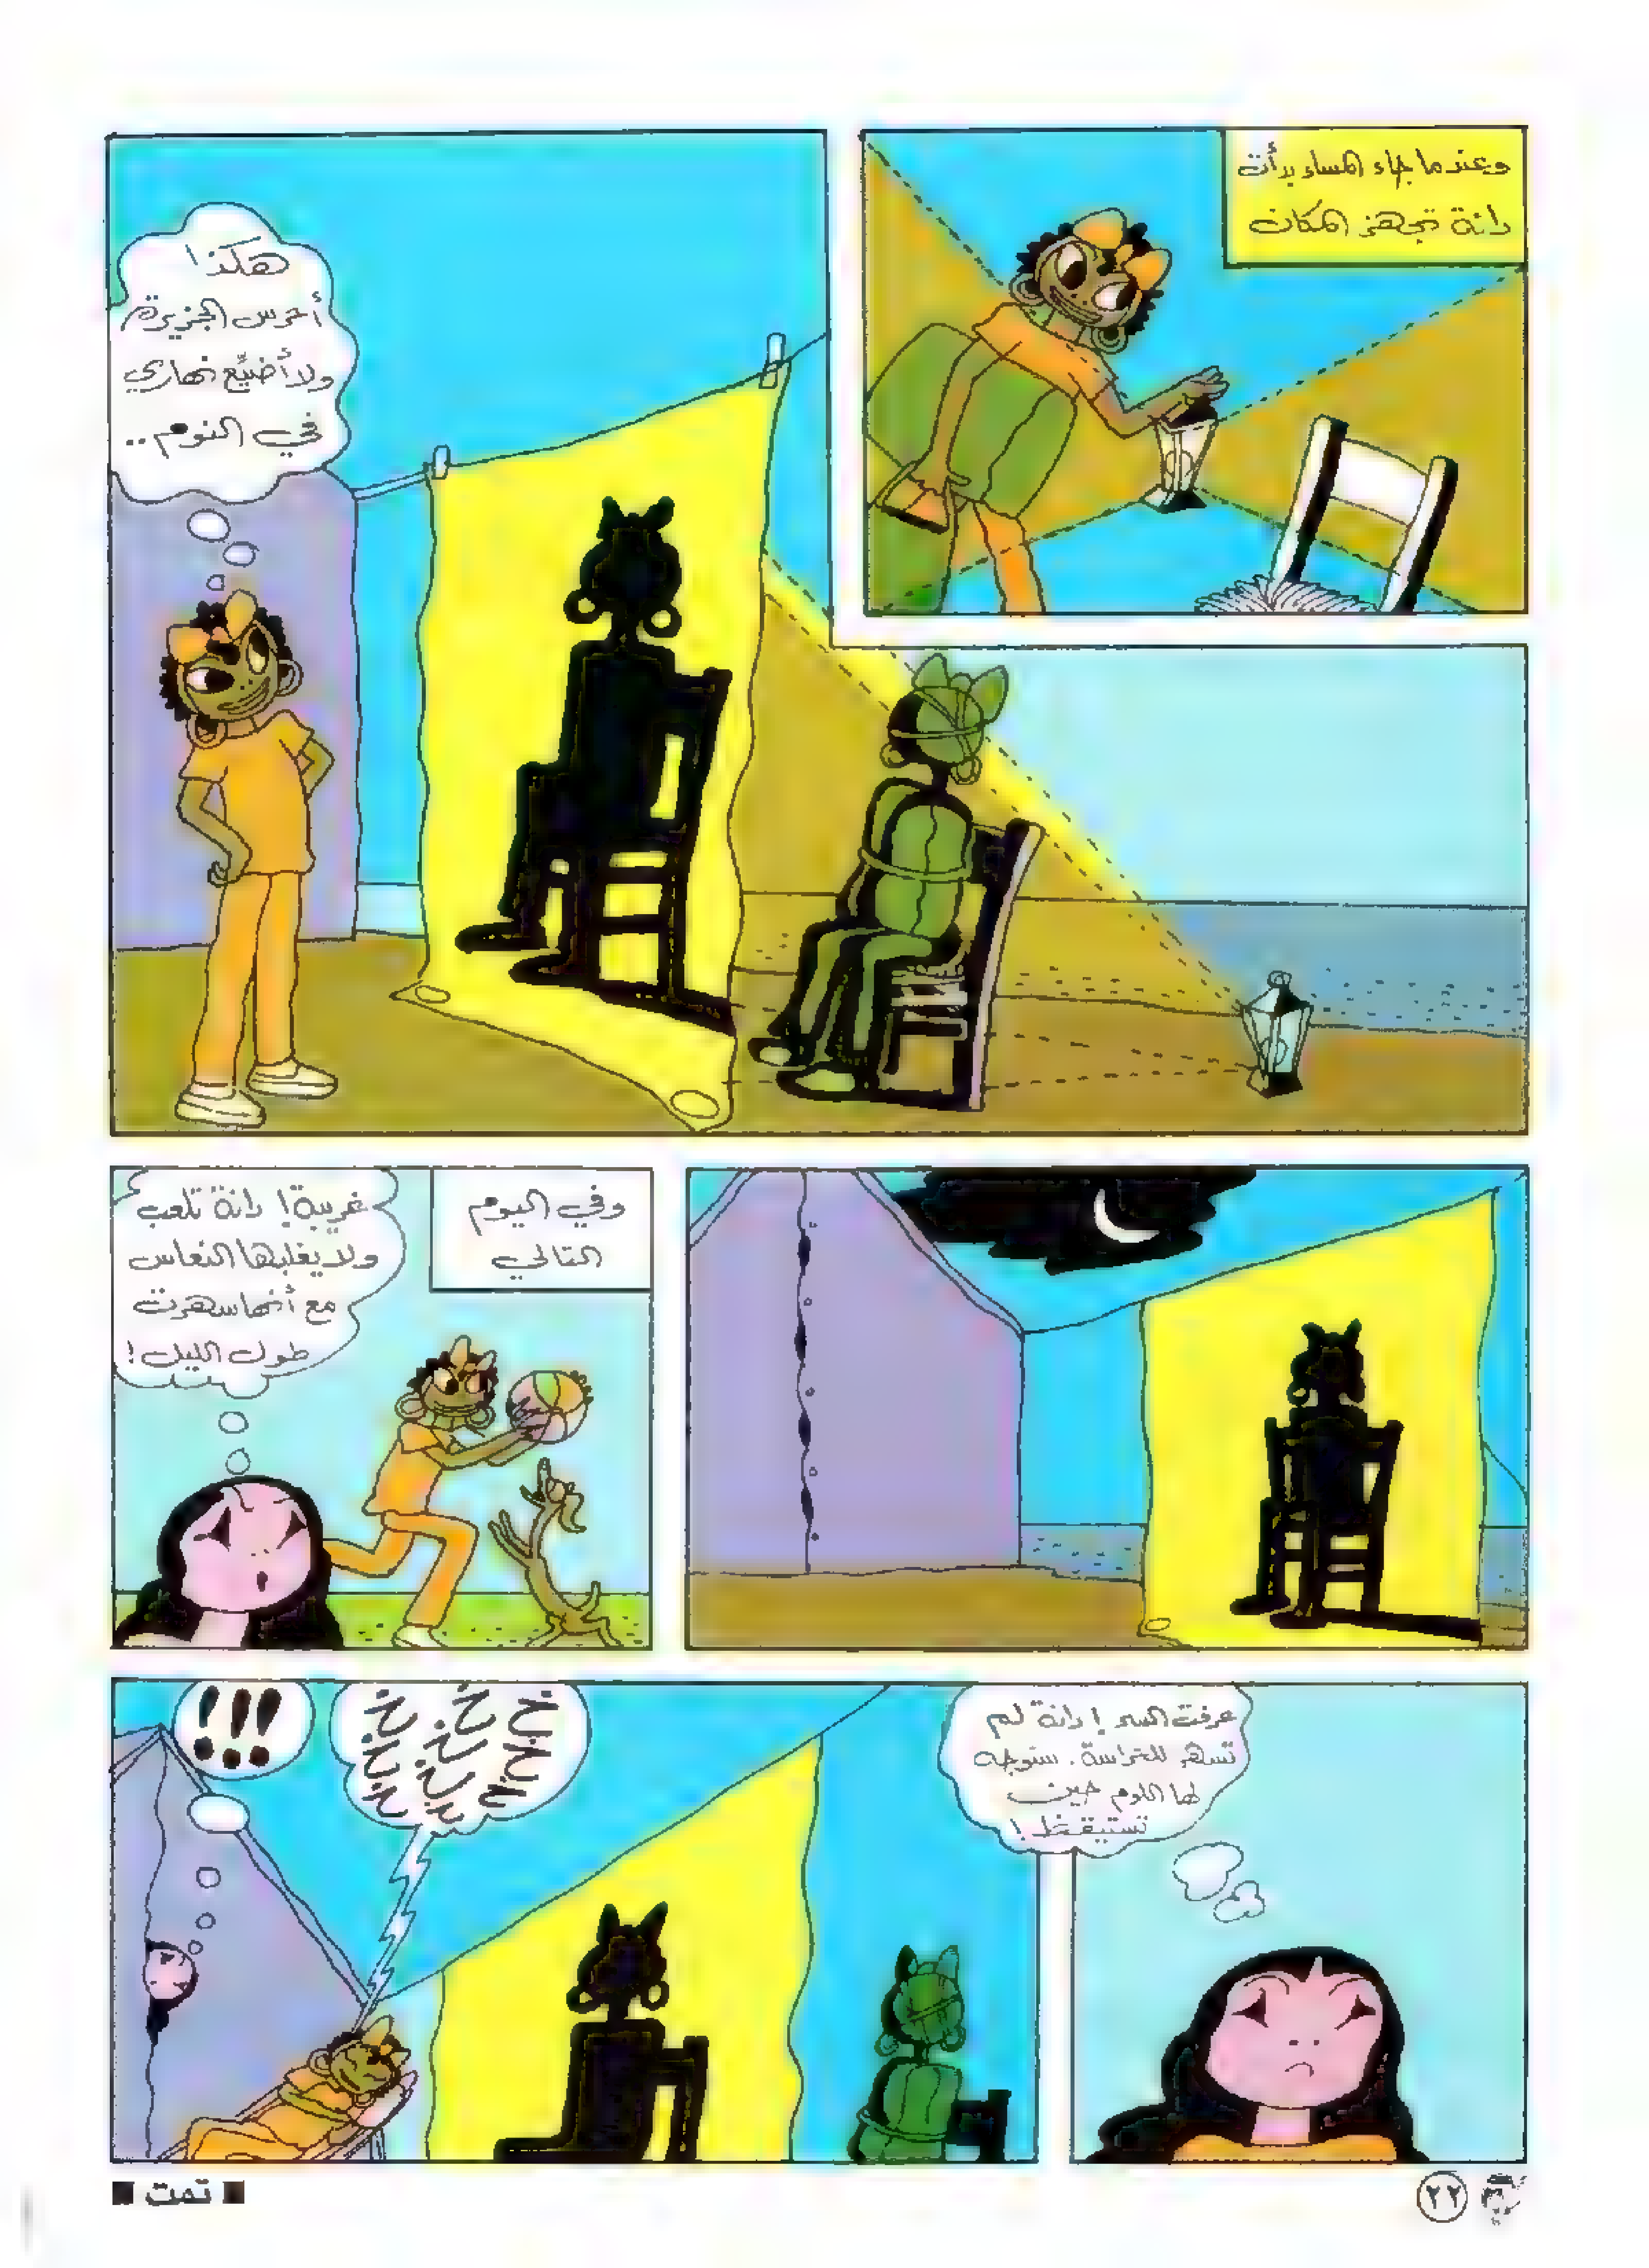 وعندما جاء المساء بدأت
دانة تجهز المكان
هكذا
أحرس الجزيرة
ولا أضيّع نهاري
في النوم..
وفي اليوم
التالي
غريبة! دانة تلعب
ولا يغلبها النعاس
مع أنها سهرت
طول الليل!
عرفت السر! دانة لم
تسهر للحراسة. سنوجه
لها اللوم حين
تستيقظ!
!!!
■ تمت ■
٢٢